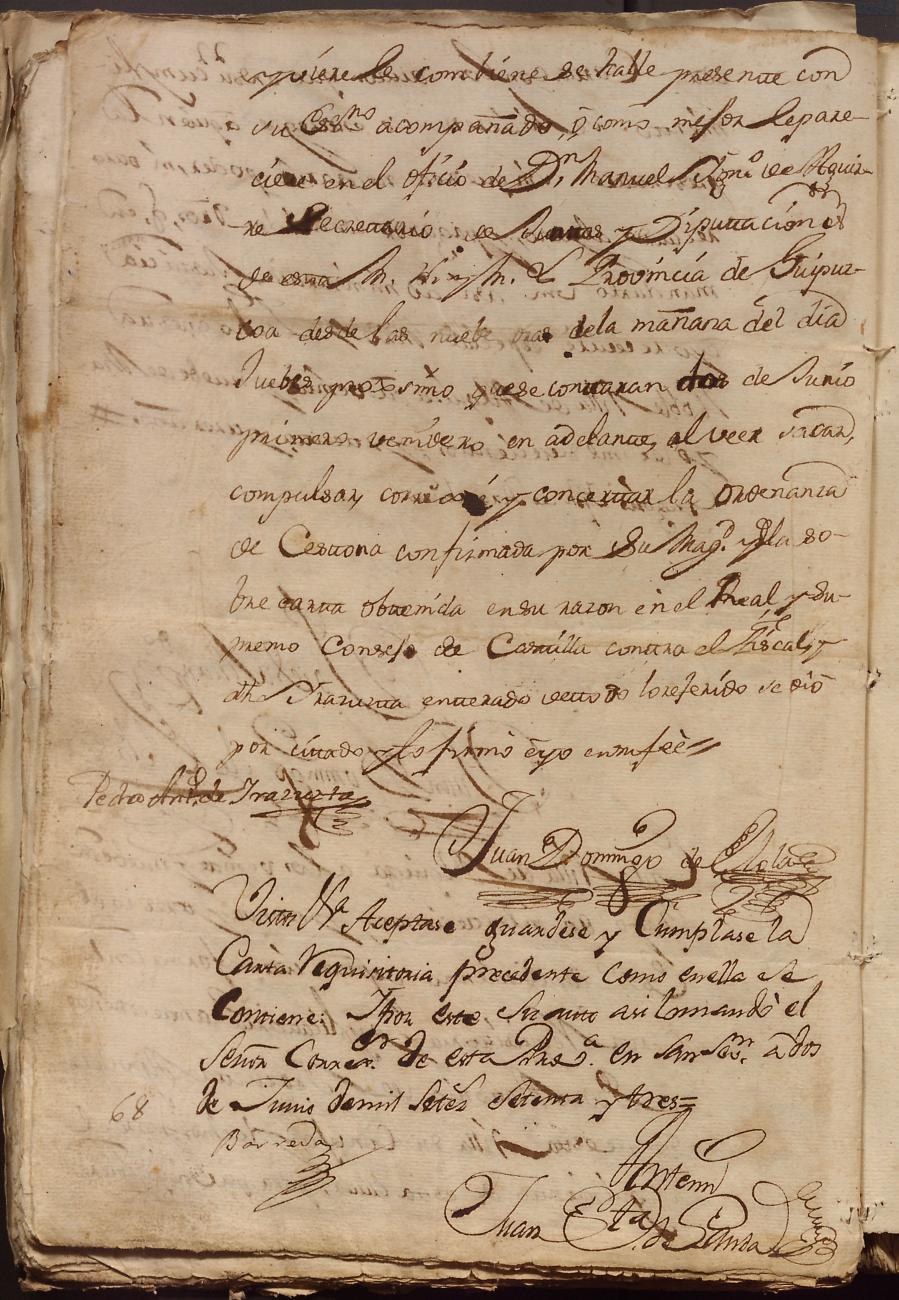 quiere le combiene se halle presente con
su Essno acompañado, o como mejor le pare-
ciere en el oficio de Dn Manuel Ign.º de Aguir-
re Secretario de Juntas y Diputaciones
de esta M. N. y M. L. Provincia de Guipuz-
coa desde las nuebe oras dela mañana del dia
Juebes proxsmo que se contaran dos de Junio
primero venidero en adelante, al veer sacar,
compulsar, correxir y concertar la ordenanza
de Cestona confirmada por Su Magd. y la so-
bre carta obtenida en su razon en el Real y Su-
premo Consejo de Castilla contra el Fiscal, y
dho Irazusta enterado de todo lo referido se dio
por citado y lo firmo e yo en mi fee
Pedro Antº. de Irazusta
Juan Domingo de
Vista Aceptase guardese y Cumplase la
Carta requisitoria precedente como en ella se
Contiene. I por este su auto asi lo mandò el
Señor Correxor. de esta Prova. en San Sevn. a dos
de Junio de mil setes. setenta y tres=
68
Barreda
Antemi
Juan Bta. de Landa